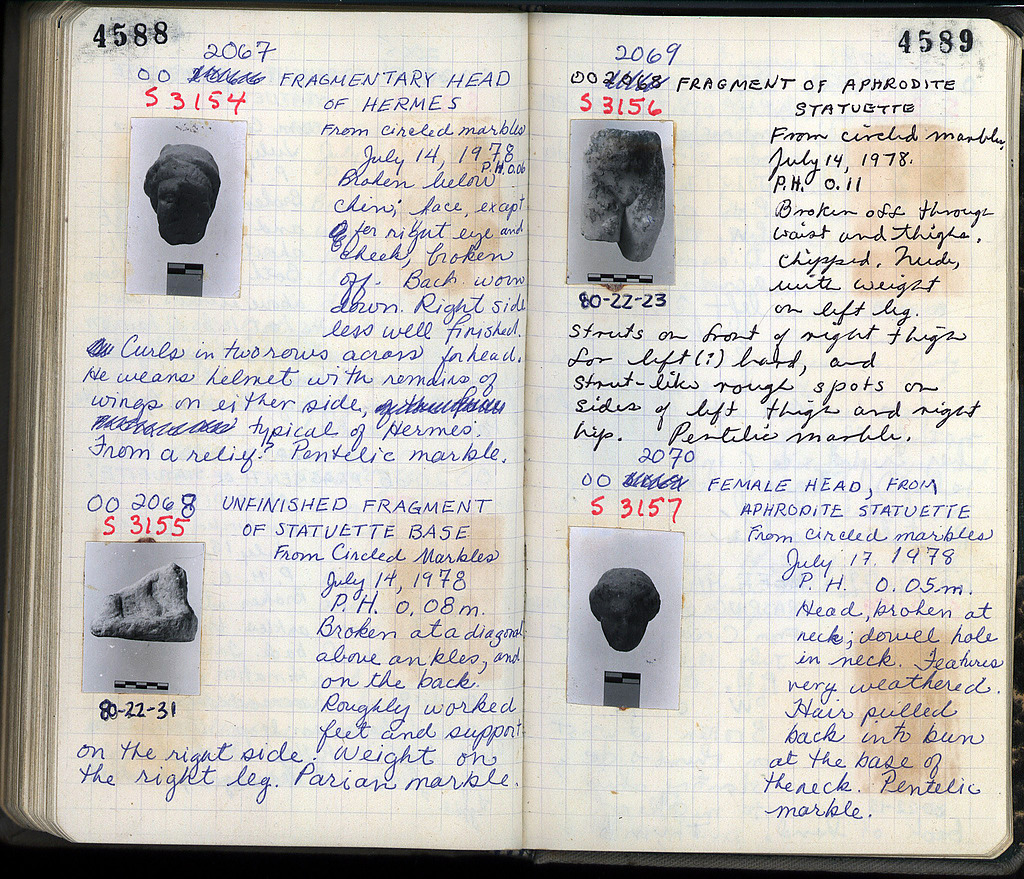 4588
2067
OO FRAGMENTARY HEAD
S 3154
OF HERMES
From circled marbles
July 14, 1978
P.H. 0.06
Broken below
chin; face, except
for right eye and
cheek, broken
off. Back worn
down. Right side
less well finished.
Curls in two rows across forhead.
He wears helmet with remains of
wings on either side,
typical of Hermes.
From a relief? Pentelic marble.
OO 2068 UNFINISHED FRAGMENT
S 3155
OF STATUETTE BASE
From Circled Marbles
July 14, 1978
P.H. 0.08m.
Broken at a diagonal
above ankles, and
on the back.
Roughly worked
feet and support
80-22-31
on the right side. Weight on
the right leg. Parian marble.
4589
2069
OO 2068 FRAGMENT OF APHRODITE
S 3156
STATUETTE
From circled marbles,
July 14, 1978.
P.H. 0.11
Broken off through
waist and thighs.
chipped. Nude,
with weight
on left leg.
80-22-23
Struts on front of right thigh
for left(?) hand, and
strut-like rough spots on
sides of left thigh and right
hip. Pentelic marble.
2070
OO FEMALE HEAD, FROM
S 3157
APHRODITE STATUETTE
From circled marbles
July 17. 1978
P.H. 0.05m.
Head, broken at
neck; dowell hole
in neck. Features
very weathered.
Hair pulled
back into bun
at the base of
the neck. Pentelic
marble.